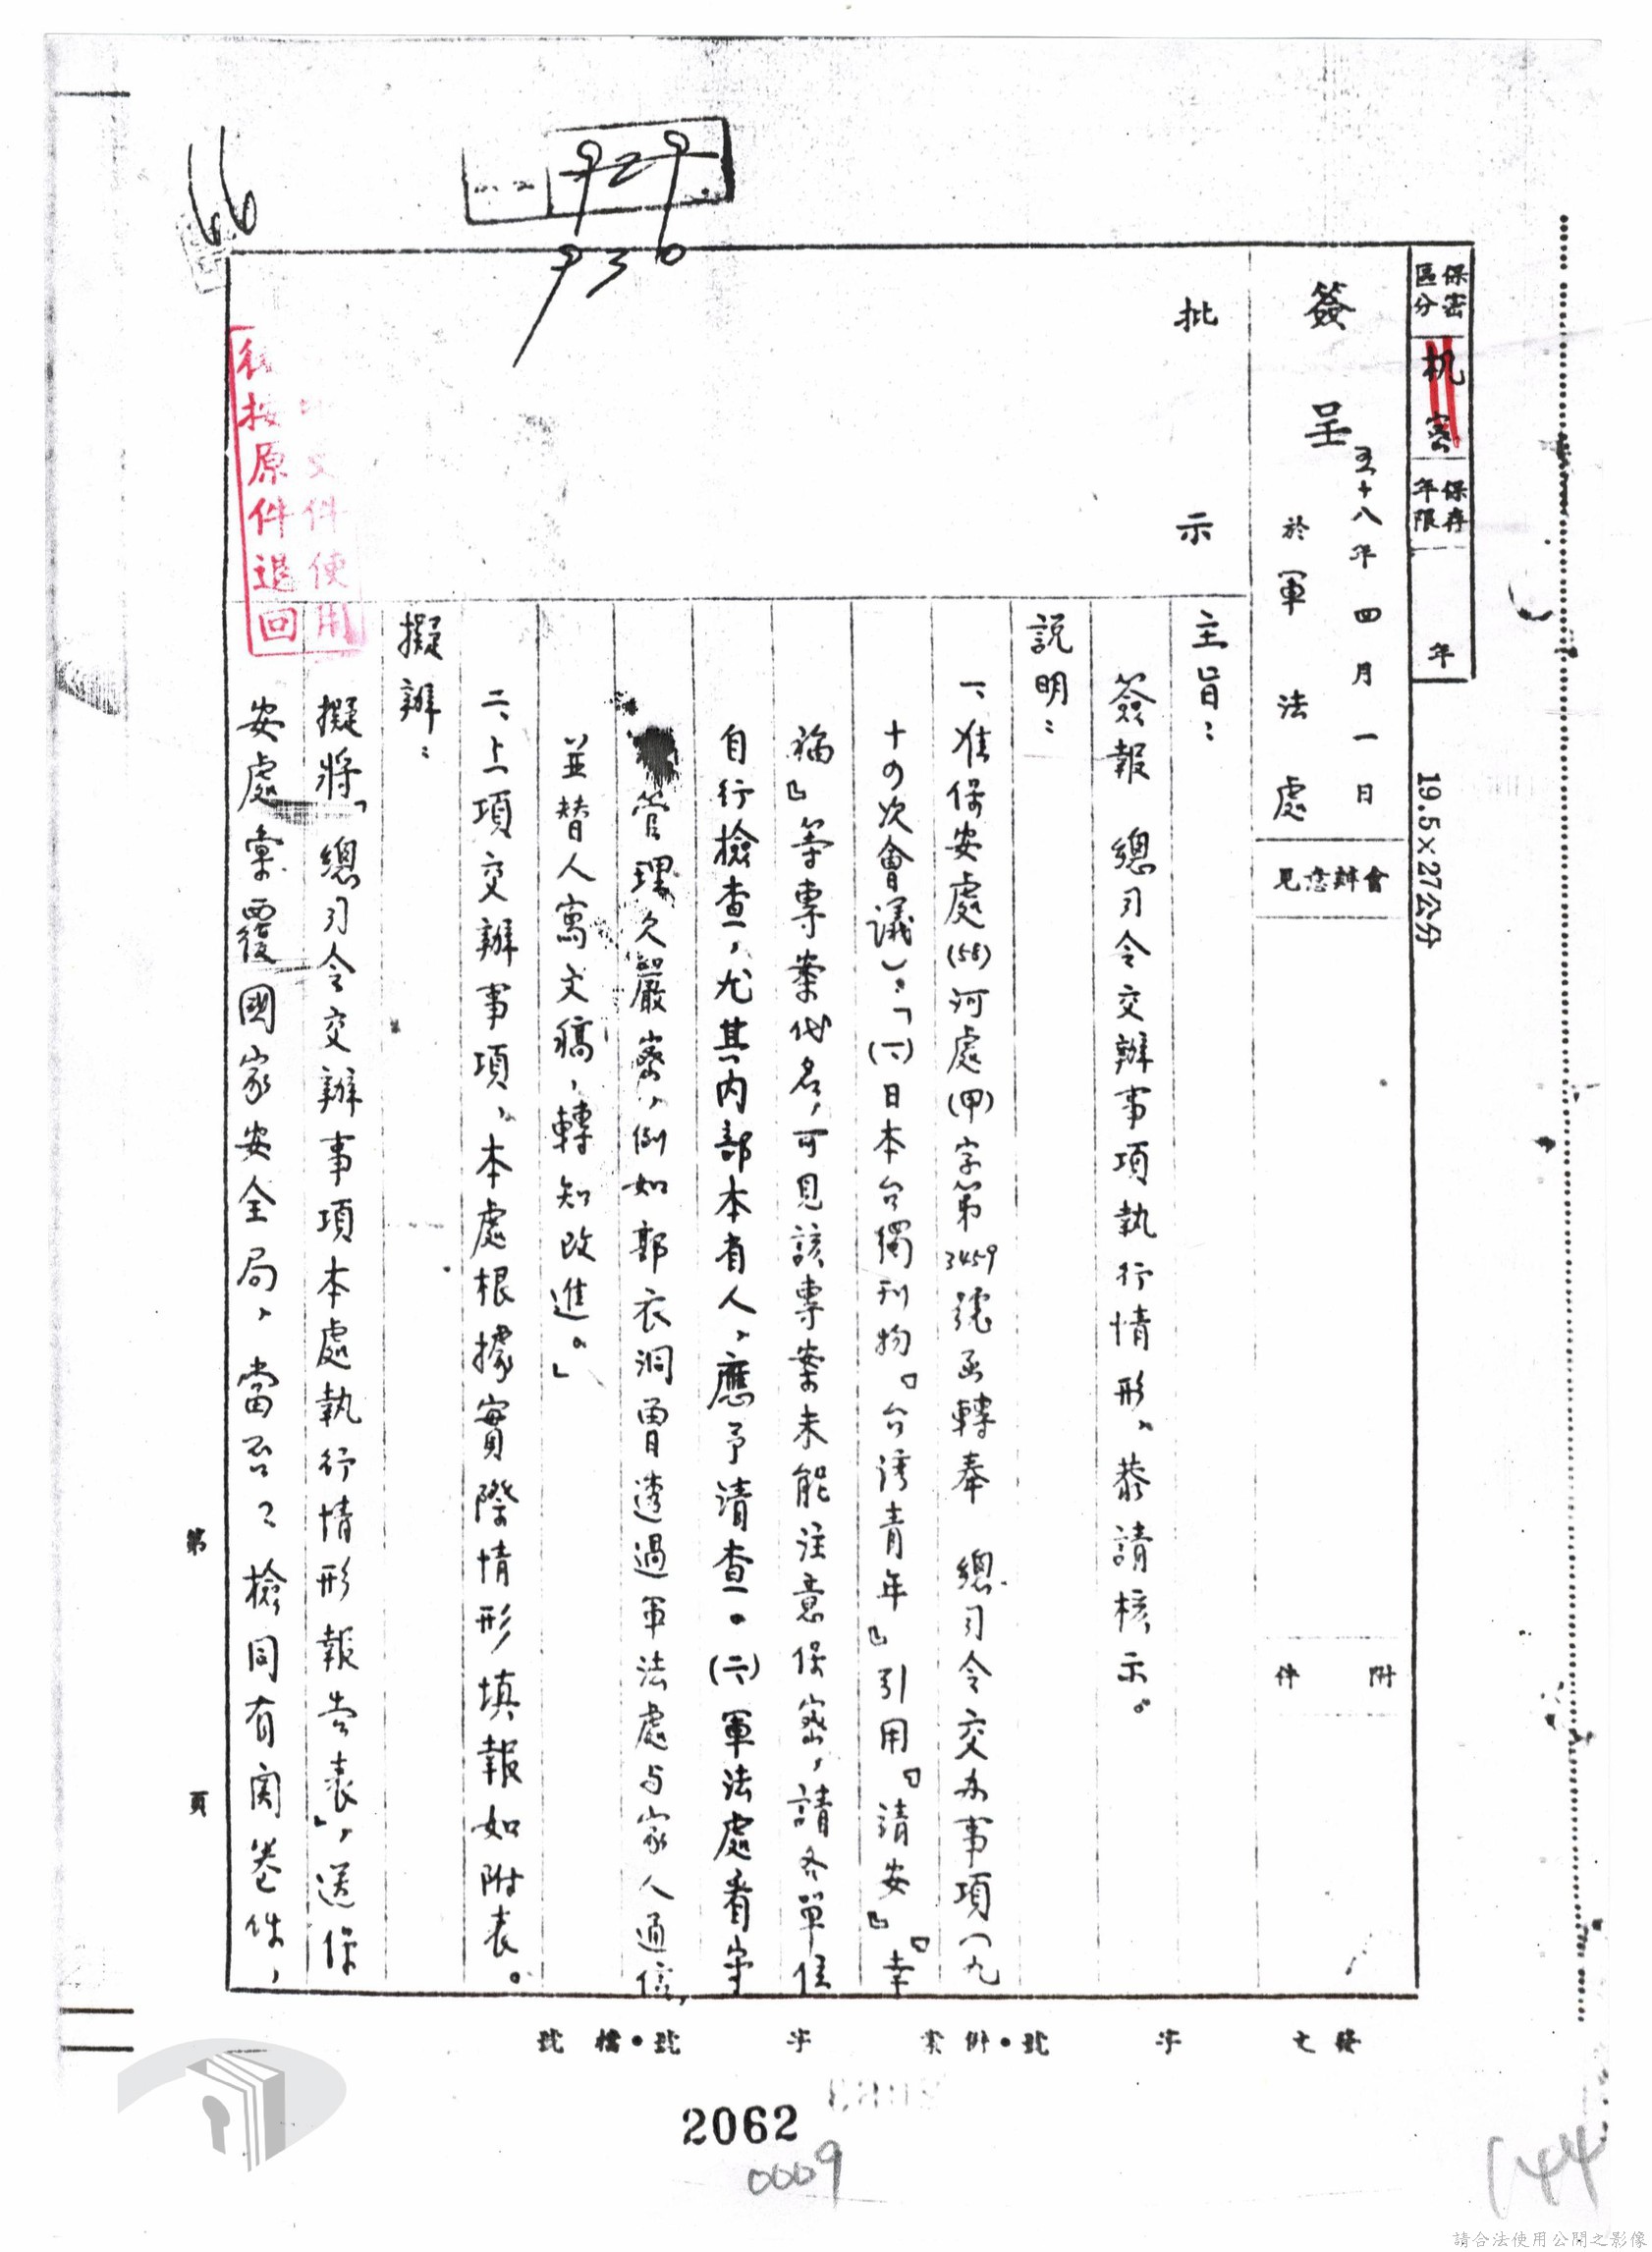 保密區分
机密
保存年限
年
19.5×27公分
簽呈
五十八年四月一日
於軍法處
會辦意見
附件
批示
主旨：
簽報 總司令交辦事項執行情形，恭請核示。
說明：
一、准保安處(58)河處(甲)字第3459號函轉奉 總司令交办事項（九
十四次會議）：「(一)日本台獨刊物『台湾青年』引用『清安』『幸
福』等專案代名，可見該專案未能注意保密，請各單位
自行檢查，尤其內部本省人，應予清查。(二)軍法處看守
管理欠嚴密，例如郭衣洞曾透過軍法處与家人通信，
並替人寫文稿，轉知改進。」
二、上項交辦事項，本處根據實際情形填報如附表。
擬辦：
擬將「總司令交辦事項本處執行情形報告表」，送保
安處彙覆國家安全局，當否？檢同有関卷件，
文件使用
後按原件退回
66
929
930
第 頁
發文 字 號•併案 字 號•檔號
2062
0009
144
請合法使用公開之影像